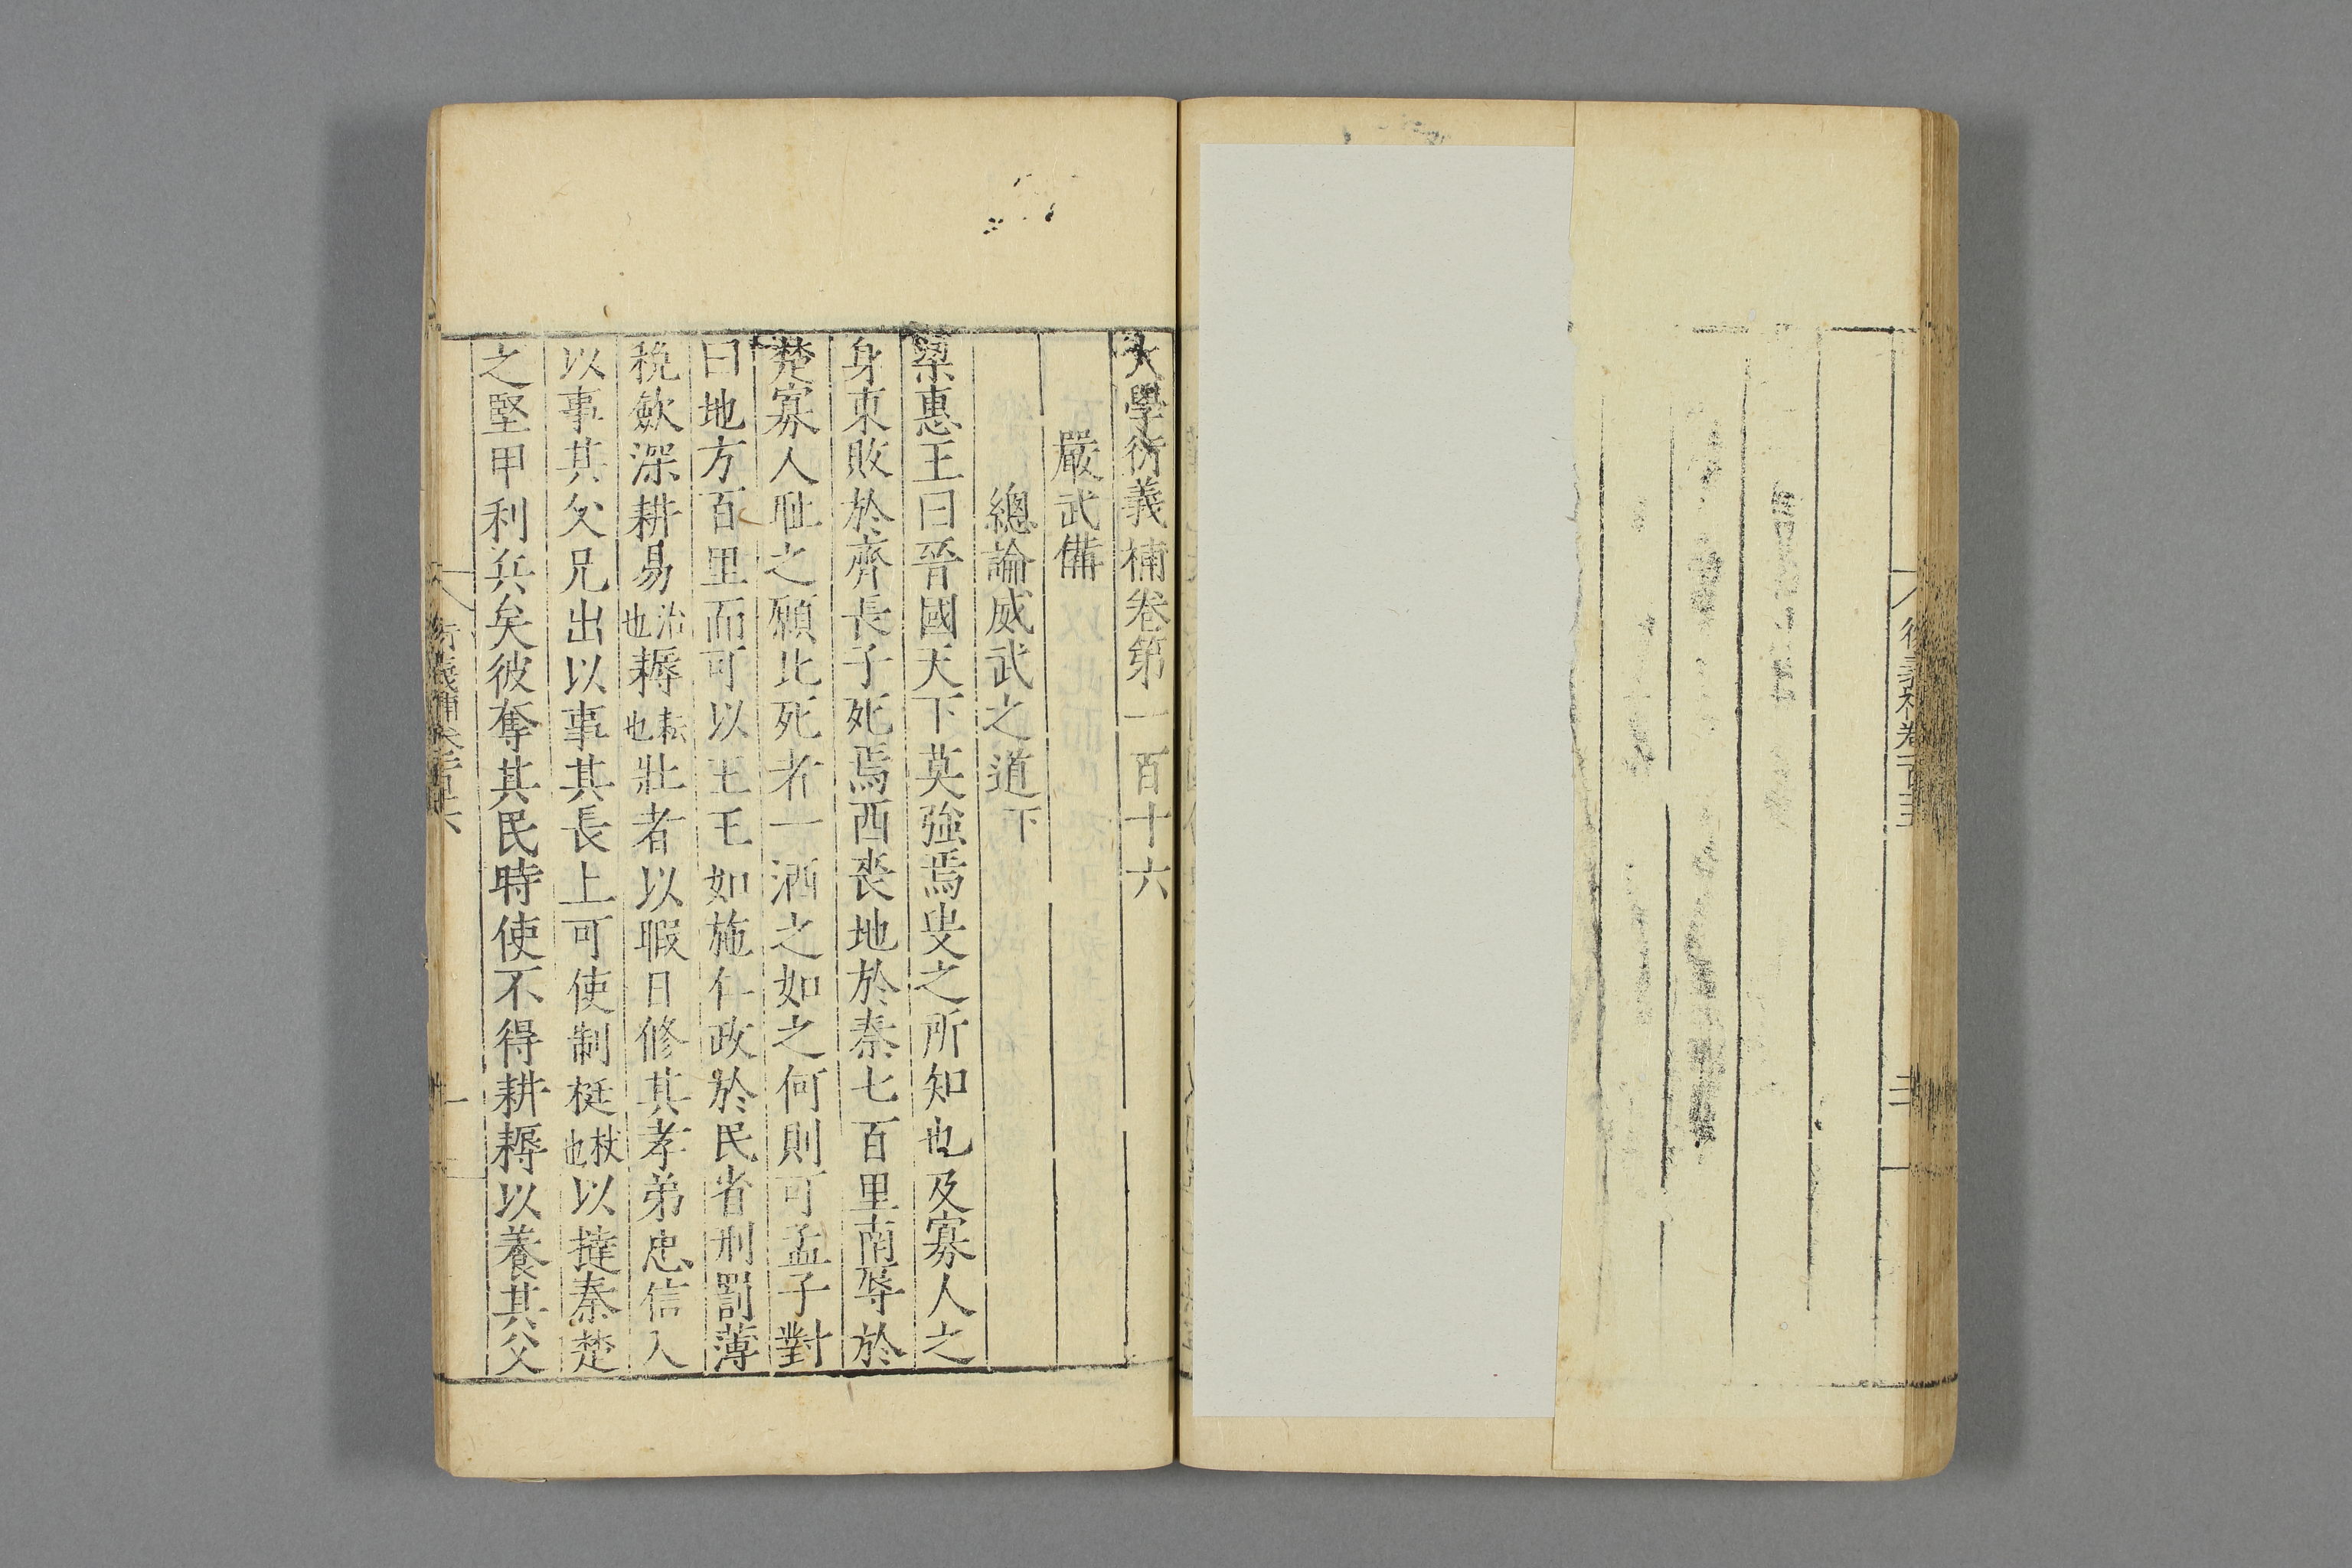 衍義補卷一百十五
大學衍義補卷第一百十六
嚴武備
總論威武之道下
梁惠王曰晉國天下莫強焉叟之所知也及寡人之
身東敗於齊長子死焉西喪地於秦七百里南辱於
楚寡人恥之願比死者一洒之如之何則可孟子對
曰地方百里而可以王王如施仁政於民省刑罰薄
稅斂深耕易治也耨耘也壯者以暇日修其孝弟忠信入
以事其父兄出以事其長上可使制梃杖也以撻秦楚
之堅甲利兵矣彼奪其民時使不得耕耨以養其父
衍義補卷一百十六
一